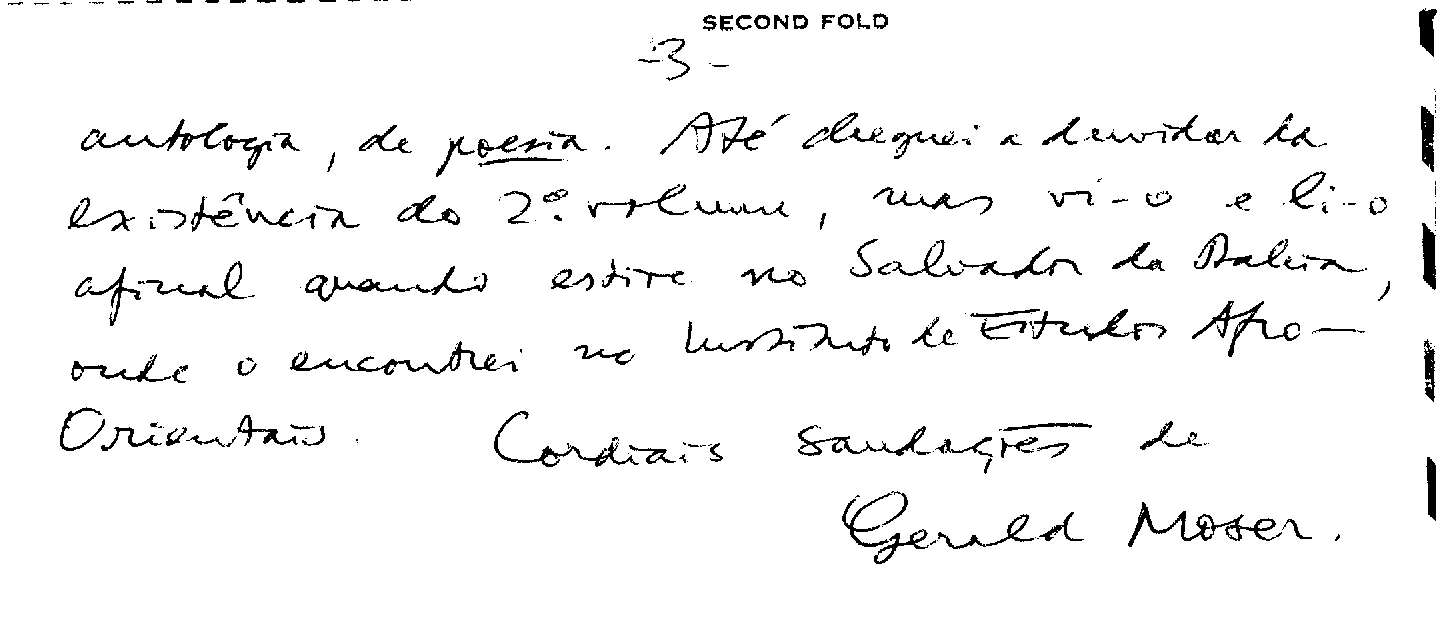 SECOND FOLD
-3-
antologia, de poesia. Até cheguei a duvidar da
existência do 2º. volume, mas vi-o e li-o
afinal quando estive no Salvador da Bahia,
onde o encontrei no Instituto de Estudos Afro-
Orientais. Cordiais saudações de
Gerald Moser.